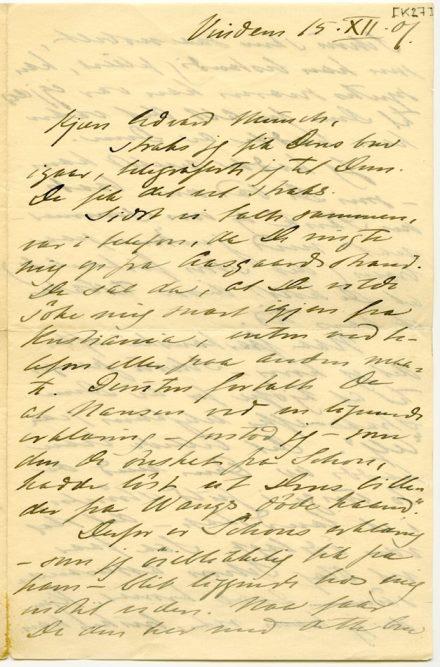 [K27]
Vindern 15. XII. 07.
Kjære Edvard Munch,
Straks jeg fik Deres brev
igaar, telegraferte jeg til Dem.
De fik det vel straks.
Sidst vi talte sammen,
var i telefon, da De ringte
mig op fra Aasgaardstrand.
De sa da, at De vilde
söke mig snart igjen fra
Kristiania, enten ved te-
lefon eller paa anden maa-
te. Desuten fortalte De
at Nansen ved en lignende
erklæring – forstod jeg – som
den De önsket fra Schou,
hadde löst ut Deres billeder
der fra Wangs "döde haand".
Derfor er Schous erklæring
– som jeg öieblikkelig fik fra
ham – blit liggende hos mig
indtil videre. Nu faar
De den her med